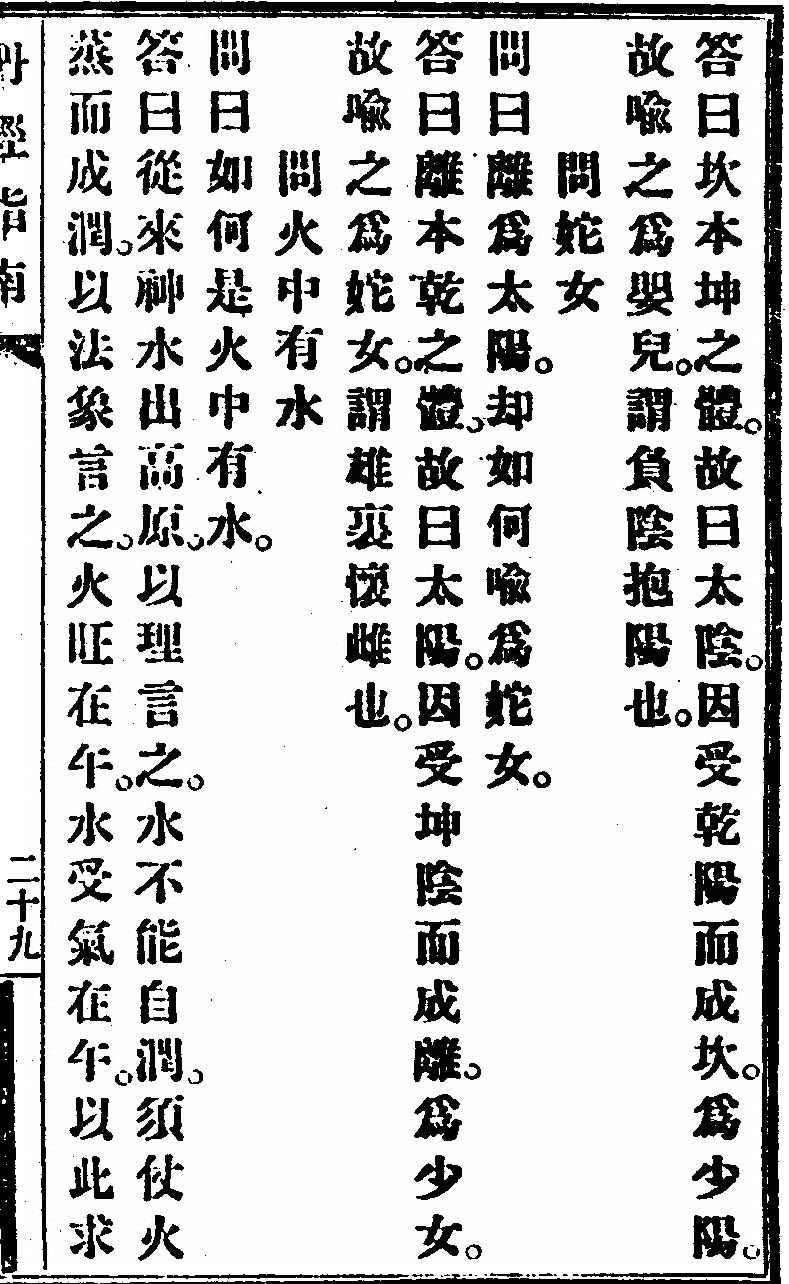 答曰坎本坤之體。故曰太陰。因受乾陽而成坎。爲少陽。
故喩之爲嬰兒。謂負陰抱陽也。
問姹女
問曰離爲太陽。却如何喩爲姹女。
答曰離本乾之體。故曰太陽。因受坤陰而成離。爲少女。
故喩之爲姹女。謂雄裏懷雌也。
問火中有水
問曰如何是火中有水。
答曰從來神水出高原。以理言之。水不能自潤。須仗火
蒸而成潤。以法象言之。火旺在午。水受氣在午。以此求
丹經指南
二十九